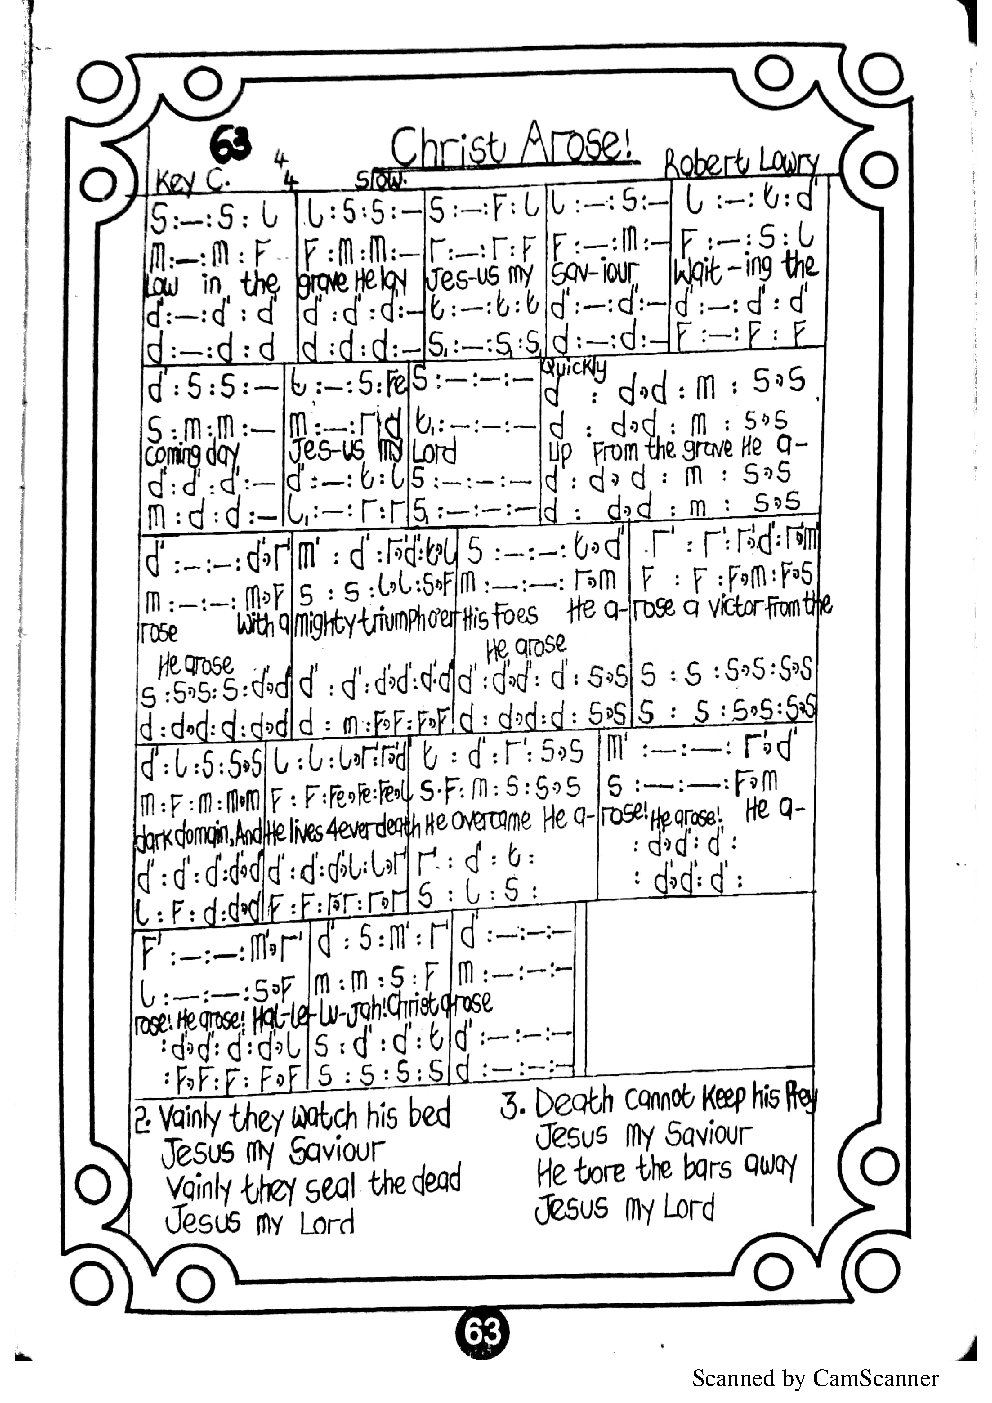 63 Christ Arose!
Key C. 4/4 Slow. Robert Lowry
S:—:S:l | l:S:S:— | S:—:F:l | l:—:S:— | l:—:t:d'
m:—:m:F | F:m:m:— | r:—:r:F | F:—:m:— | F:—:S:l
Low in the grave He lay Jes-us my Sav-iour Wait-ing the
d':—:d':d' | d':d':d':— | t:—:t:t | d':—:d':— | d':—:d':d'
d:—:d:d | d:d:d:— | S₁:—:S₁:S₁ | d:—:d:— | F:—:F:F
Quickly
d':S:S:— | t:—:S:Fe | S:—:—:— | d : d,d : m : S,S
S:m:m:— | m:—:r:d | t₁:—:—:— | d : d,d : m : S,S
coming day Jes-us my Lord Up From the grave He a-
d':d':d':— | d':—:t:l | S:—:—:— | d : d,d : m : S,S
m:d:d:— | l₁:—:r:r | S₁:—:—:— | d : d,d : m : S,S
d':—:—:d',r' | m':d':r',d':t,l | S:—:—:t,d' | r':r':r',d':r',m'
m:—:—:m,F | S:S:l,l:S,F | m:—:—:r,m | F:F:F,m:F,S
rose With a mighty triumph o'er His Foes He a-rose a victor from the
He arose He arose
S:S,S:S:d',d' | d':d':d',d':d',d' | d':d',d':d':S,S | S:S:S,S:S,S
d:d,d:d:d,d | d:m:F,F:F,F | d:d,d:d:S,S | S:S:S,S:S,S
d':l:S:S,S | l:l:l,r':r',d' | t:d':r':S,S | m':—:—:r',d'
m:F:m:m,m | F:F:Fe,Fe:Fe,l | S.F:m:S:S,S | S:—:—:F,m
dark domain, And He lives 4ever death He overcame He a-rose! He arose! He a-
d':d':d':d',d' | d':d':d',l:l,r' | r':d':t: | :d',d':d':
l:F:d:d,d | F:F:r,r:r,r | S:l:S: | :d',d':d':
F':—:—:m',r' | d':S:m':r' | d':—:—:—
l:—:—:S,F | m:m:S:F | m:—:—:—
rose! He arose! Hal-le-Lu-jah! Christ arose
:d',d':d':d',l | S:d':d':t | d':—:—:—
:F,F:F:F,F | S:S:S:S | d:—:—:—
2. Vainly they watch his bed
Jesus my Saviour
Vainly they seal the dead
Jesus my Lord
3. Death cannot keep his Prey
Jesus my Saviour
He tore the bars away
Jesus my Lord
63
Scanned by CamScanner